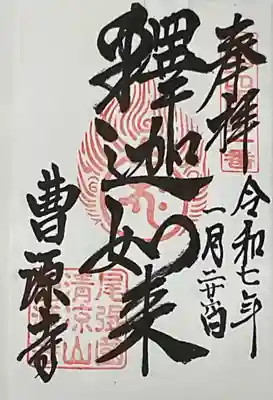 奉拝
令和七年
一月二
釋迦如来
曹源寺
尾張国
清涼山